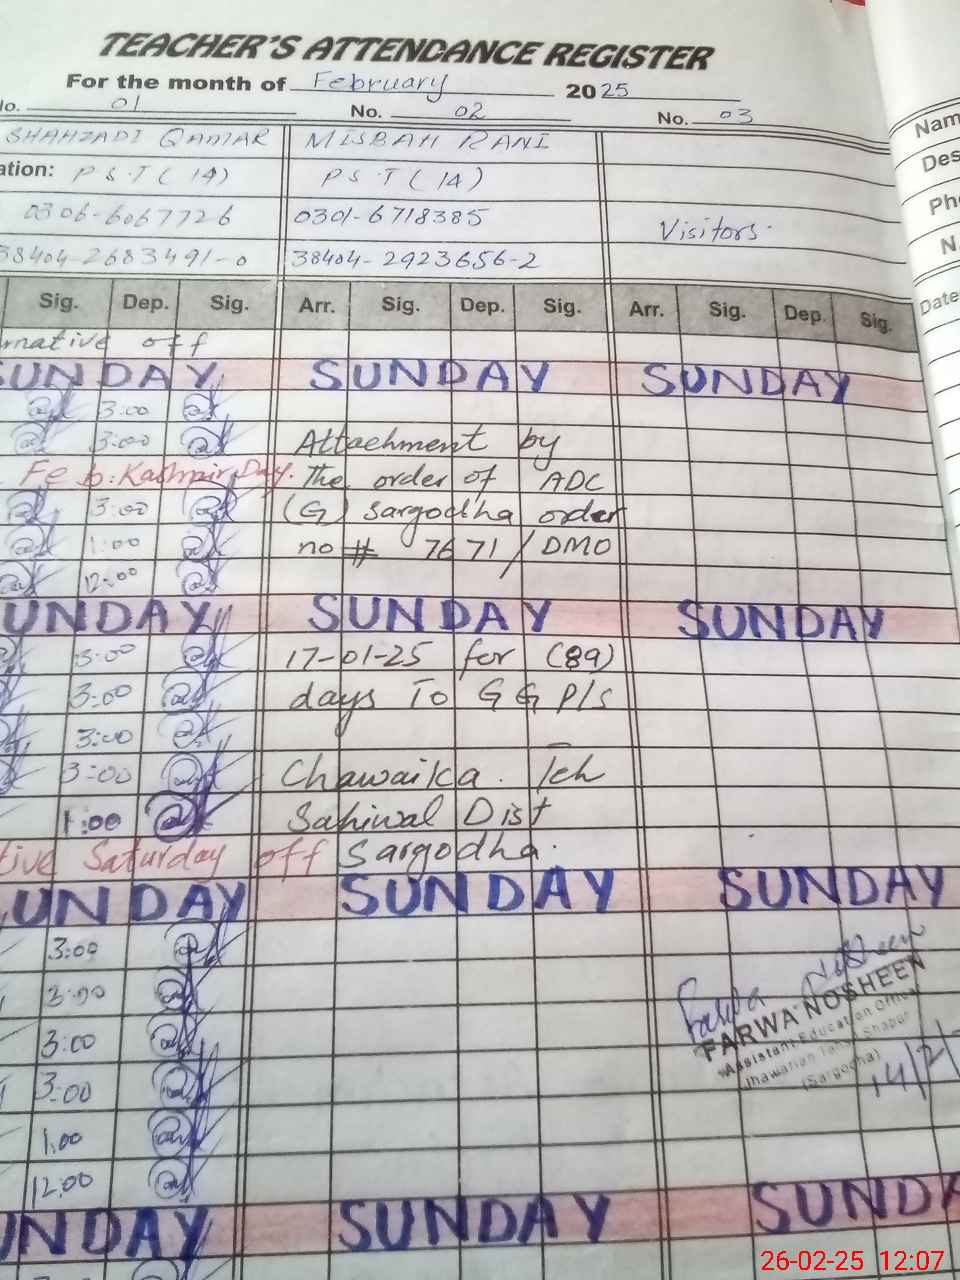 TEACHER'S ATTENDANCE REGISTER
For the month of February 2025
No. 01 No. 02 No. 03
SHAHZADI QAMAR MISBAH RANI
ation: P S T ( 14 ) P S T ( 14 )
0306-6067726 0301-6718385 Visitors.
38404-2683491-0 38404-2923656-2
Sig. Dep. Sig. Arr. Sig. Dep. Sig. Arr. Sig. Dep. Sig.
rnative off
SUNDAY SUNDAY SUNDAY
3:00
3:00 Attachment by
Feb: Kashmir Day. The order of ADC
3:00 (G) Sargodha order
1:00 no # 7671/DMO
12:00
UNDAY SUNDAY SUNDAY
3:00 17-01-25 for (89)
3:00 days To G G P/S
3:00
3:00 Chawaika. Teh
1:00 Sahiwal Dist
tive Saturday off Sargodha.
UNDAY SUNDAY SUNDAY
3:00
3:00
3:00
3:00
1:00
12:00
Farwa Nosheen
FARWA NOSHEEN
Assistant Education Office
Jhawarian Tehsil Shapur
(Sargodha)
14/2/
UNDAY SUNDAY SUNDA
Nam
Des
Pho
N.
Date
26-02-25 12:07